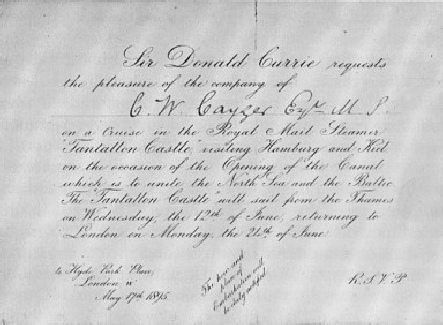 Sir Donald Currie requests
the pleasure of the company of
C. W. Cayzer Esqre M.
on a Cruise in the Royal Mail Steamer
"Tantallon Castle" visiting Hamburg and Kiel
on the occasion of the Opening of the Canal
which is to unite the North Sea and the Baltic.
The "Tantallon Castle" will sail from the Thames
on Wednesday, the 12th of June, returning to
London on Monday, the 24th of June.
Hyde Park Place,
London W
May 17th 1895.
The hour and
place of
Embarkation will
be duly notified
R.S.V.P.